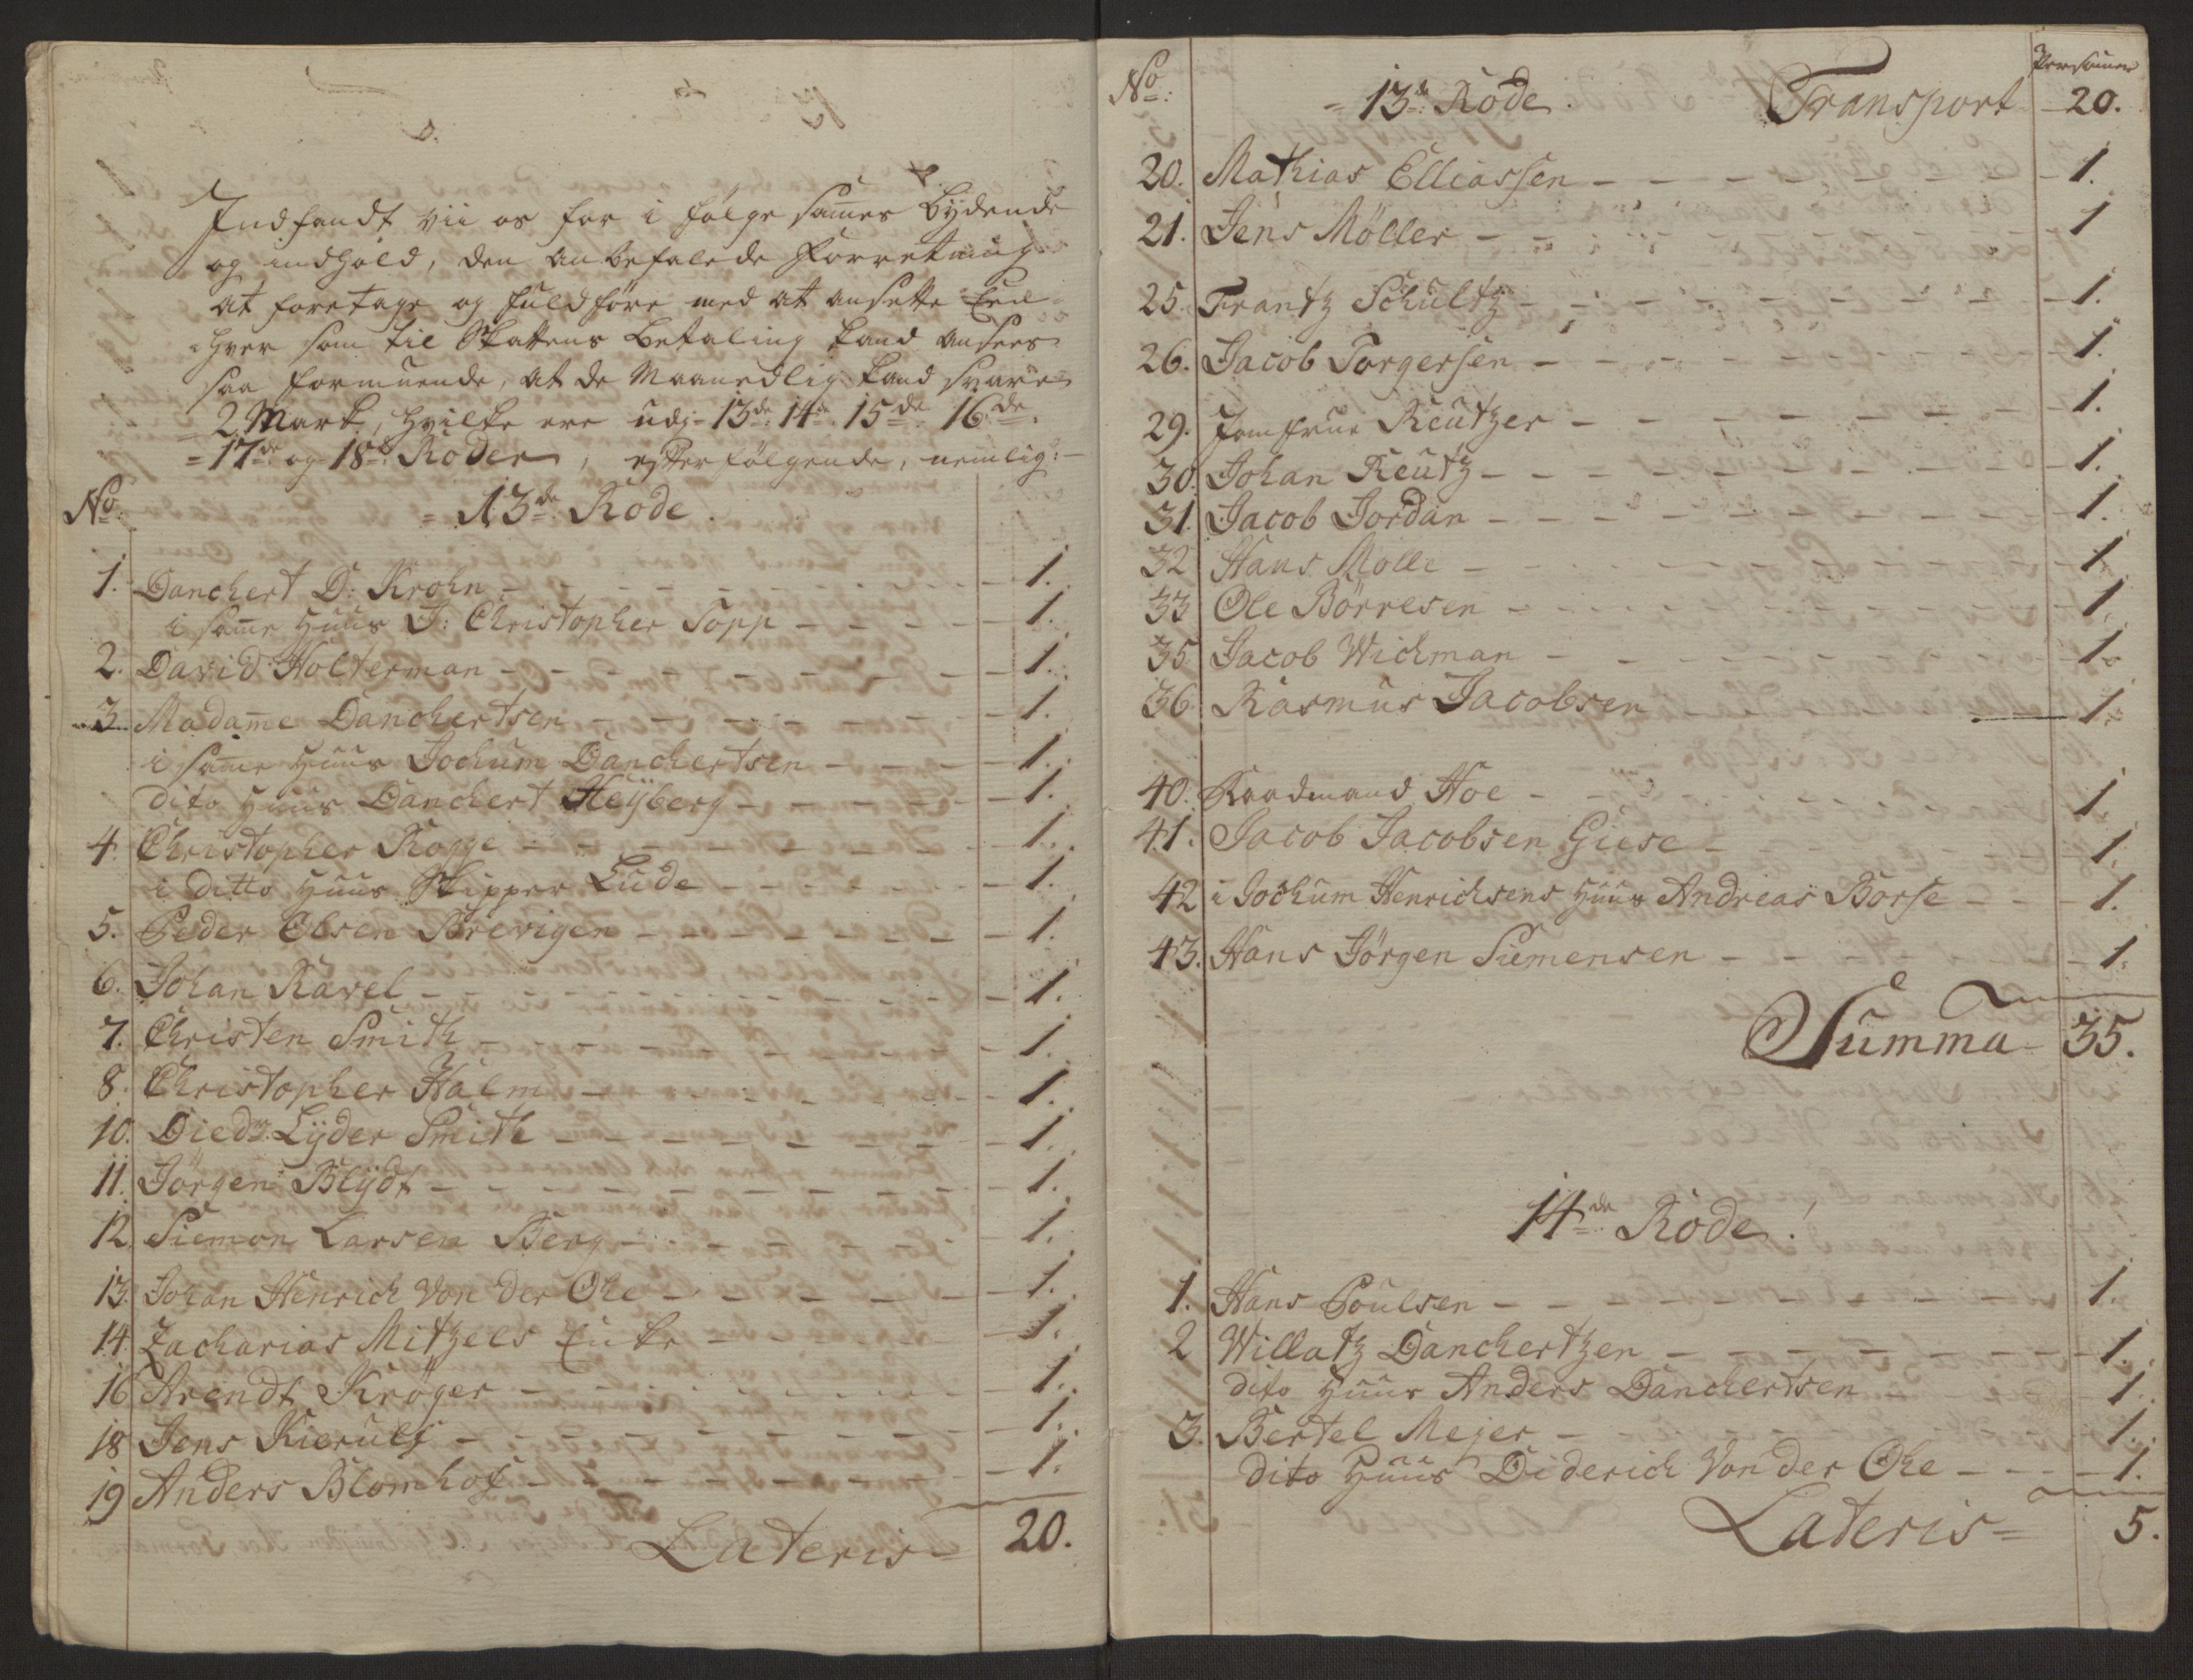 Indfandt vii os for i følge sames Bydende
og indhold, den anbefalede Forretning
at foretage og fuldføre med at ansette Een-
hver som til Skattens Betaling kand ansees
saa formuende, at de Maanedlig kand svare
2 Mark, hvilke ere udj 13de 14de 15de 16de
17de og 18de Röder, efterfølgende, nemlig:
No 13de Rode.
1. Danckert D: Krohn - 1.
i same Huus J: Christopher Sopp - 1.
2. David Holterman - 1.
3. Madame Danckertsen - 1.
i same Huus Jochum Danckertsen - 1.
dito Huus Danckert Heÿberg - 1.
4. Christopher Rogge - 1.
i ditto Huus Skipper Lude - 1.
5. Peder Olsen Brevigen - 1.
6. Johan Ravel - 1.
7. Christen Smith - 1.
8. Christopher Halm - 1.
10. Diedr. Lÿder Smith - 1.
11. Jörgen Blÿdt - 1.
12. Siemon Larsen Berg - 1.
13. Johan Henrich Von der Ohe - 1.
14. Zacharias Mitzels Enke - 1.
16 Arendt Kröger - 1.
18 Jens Kierulf - 1.
19 Anders Blomhof - 1.
Lateris 20.
No: 13de Rode. Transport Personer 20.
20. Mathias Elliassen - 1.
21. Jens Möller - 1
25. Frantz Schultz - 1.
26. Jacob Torgersen - 1.
29. Jomfrue Reutzer - 1.
30. Johan Reutz - 1.
31. Jacob Jordan - 1.
32 Hans Molle - 1.
33 Ole Börresen - 1.
35 Jacob Wichman - 1.
36 Rasmus Jacobsen 1.
40. Raadmand Hoe - 1.
41. Jacob Jacobsen Giese - 1.
42 i Jochum Henrichsens Huus Andreas Borse - 1.
43. Hans Jörgen Siemensen - 1.
Summa 35.
14de Rode.
1. Hans Poulsen - 1.
2 Willatz Danckertzen - 1.
dito Huus Anders Danckertsen - 1.
3. Bertel Mejer - 1.
dito Huus Diderich Von der Ohe - 1.
Lateris 5.